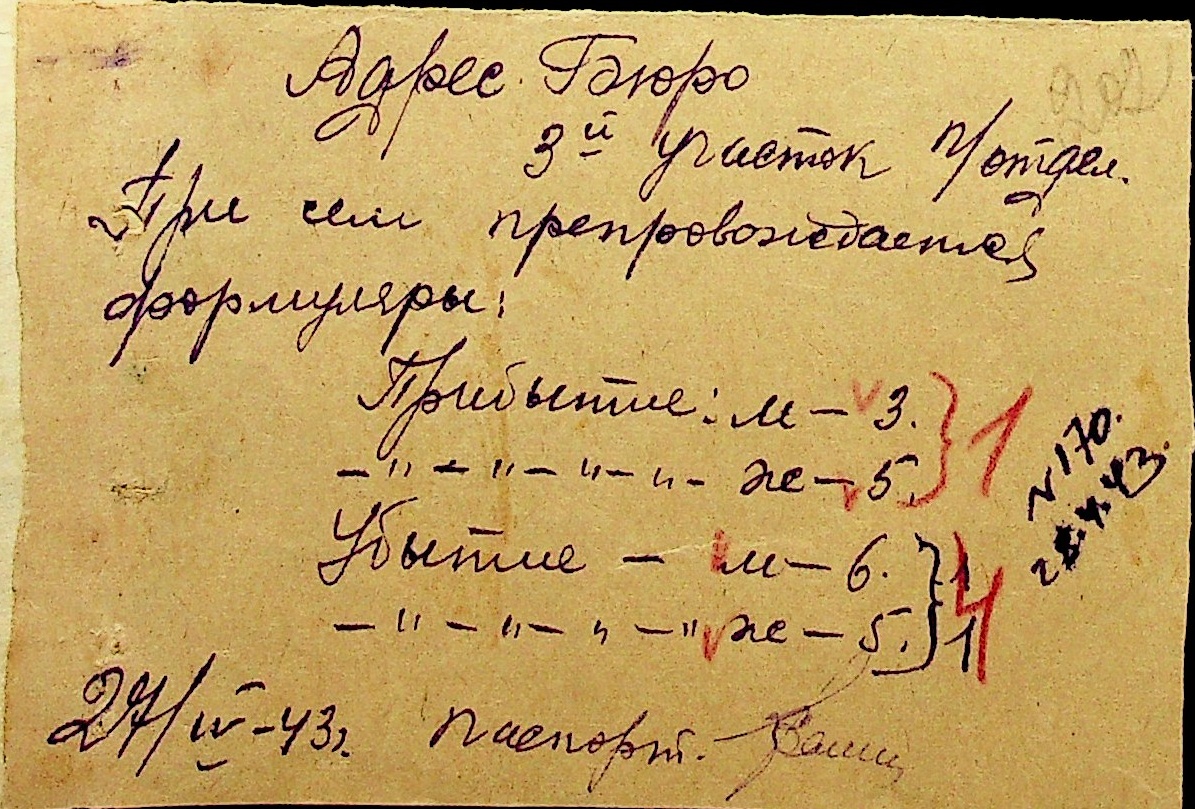 202
Адрес. Бюро
3й участок п/отдел.
При сем препровождается
формуляры:
Прибытие: м – 3. } 1
– " – " – " – " – ж – 5.
Убытие – м – 6. } 11 4
– " – " – " – " ж – 5.
N 170.
43.
27/IV – 43г. паспорт.